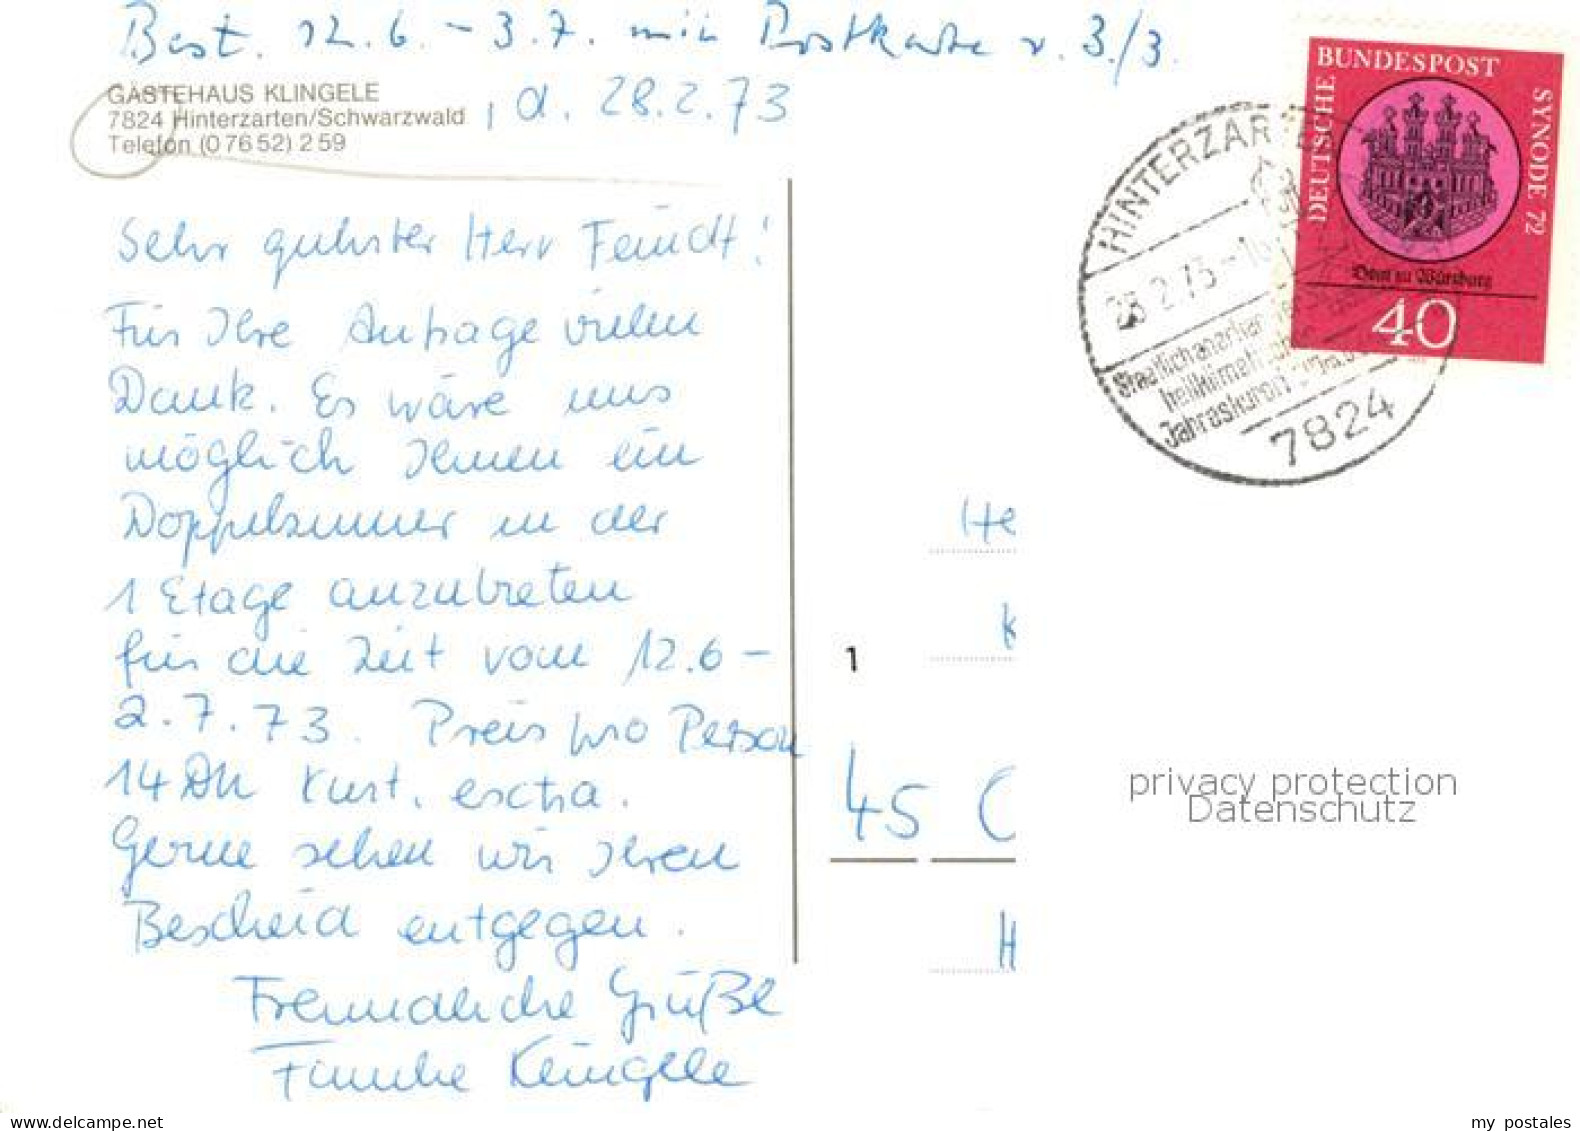 Best. 12.6. - 3.7. mit Postkarte v. 3./3.
GÄSTEHAUS KLINGELE
7824 Hinterzarten/Schwarzwald
Telefon (0 76 52) 2 59
, d. 28.2.73
Sehr geehrter Herr Feucht!
Für Ihre Anfrage vielen
Dank. Es wäre uns
möglich Ihnen ein
Doppelzimmer in der
1 Etage anzubieten
für die Zeit vom 12.6 -
2.7.73. Preis pro Person
14 DM Kurt. extra.
Gerne sehen wir Ihren
Bescheid entgegen.
Freundliche Grüße
Familie Klingele
DEUTSCHE
BUNDESPOST
SYNODE 72
Dom zu Würzburg
40
HINTERZARTEN
28.2.73-16
Staatlich anerkan
heilklimati
Jahreskurort
7824
He
K
1
45 O
H
privacy protection
Datenschutz
www.delcampe.net
my postales